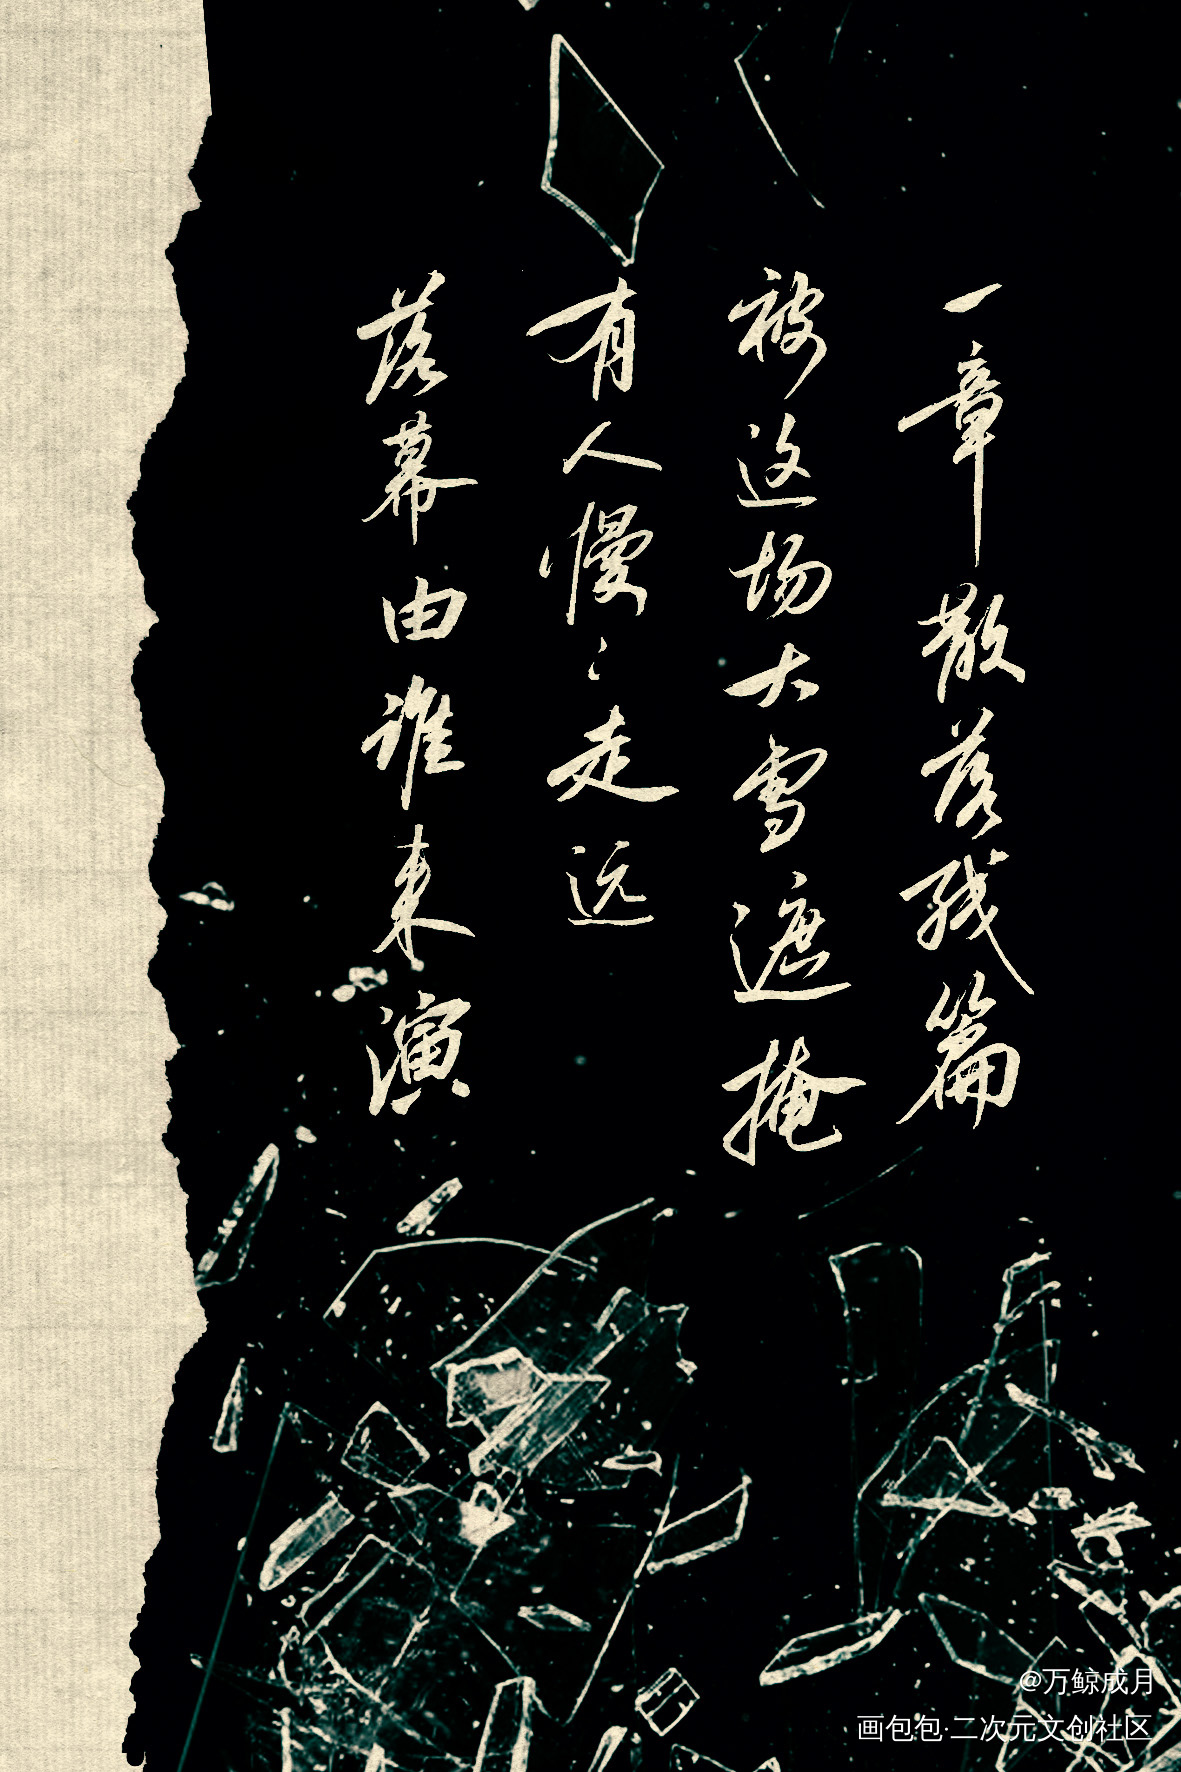 一章散落残篇
被这场大雪遮掩
有人慢〻走远
落幕由谁来演
@万鲸成月
画包包·二次元文创社区